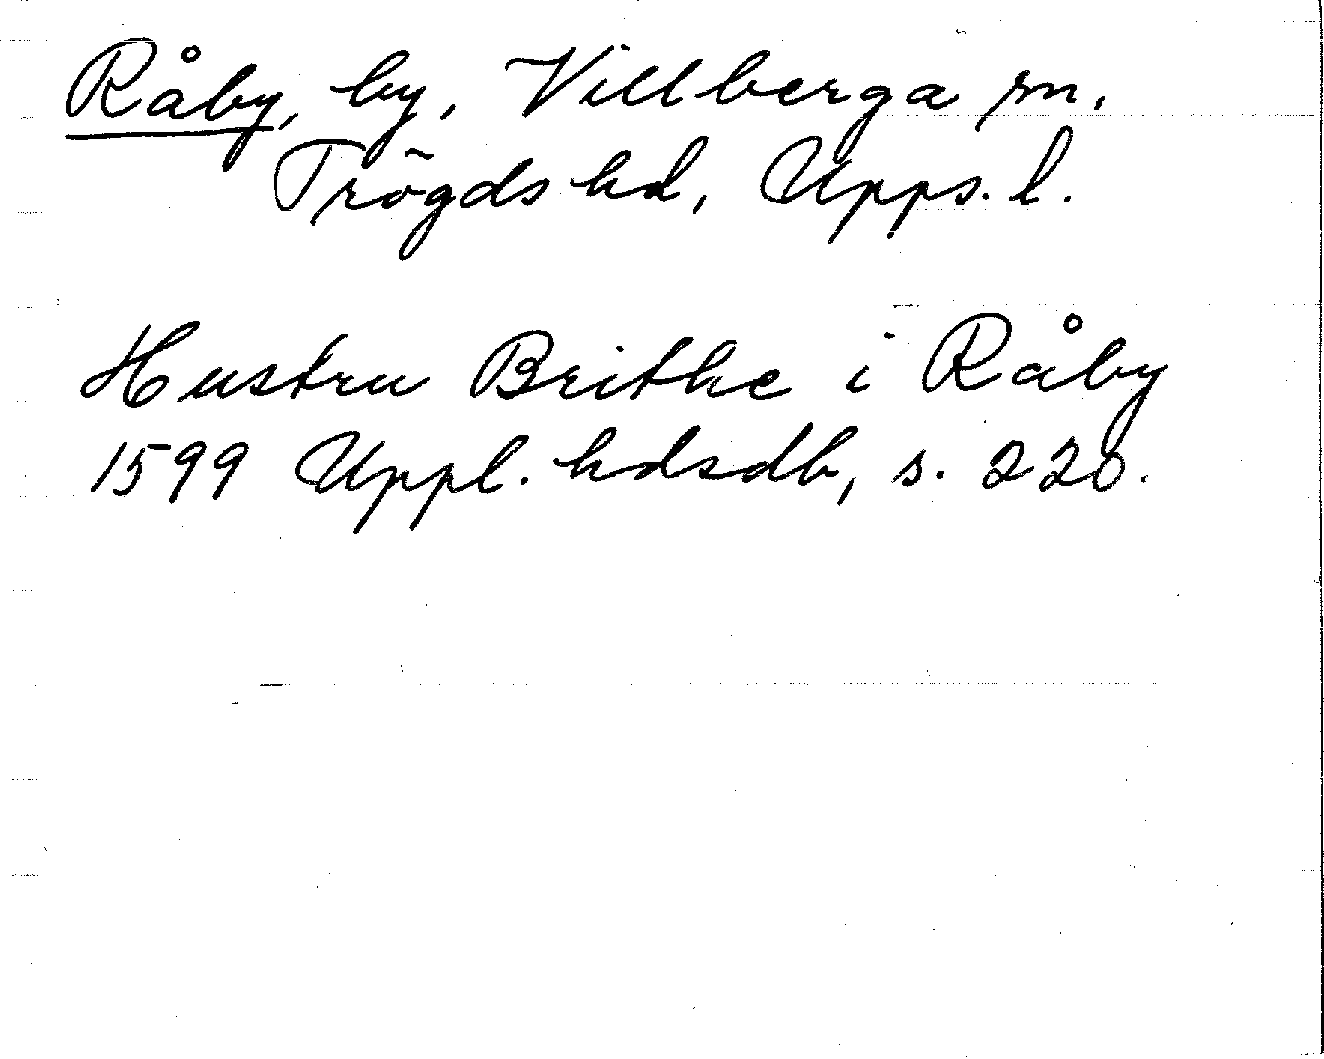 Råby, by, Villberga sn.
Trögds hd, Upps. l.
Hustru Brithe i Råby
1599 Uppl. hdsdb, s. 220.